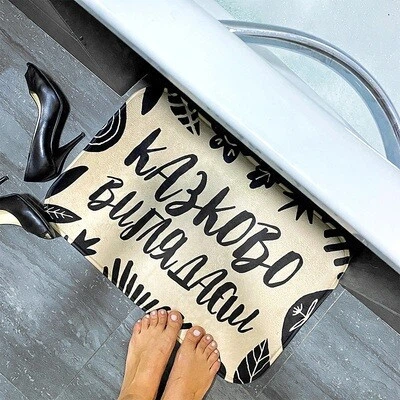 КАЗКОВО
ВИГЛЯДАЄШ